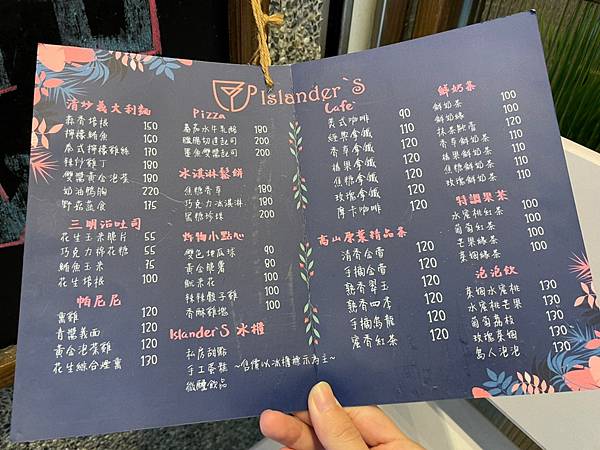 Islander`S
Cafe'
清炒義大利麵
蒜香培根 150
檸檬鮪魚 160
泰式檸檬雞絲 170
辣炒雞丁 180
雙醬黃金泡菜 180
奶油鴨胸 220
野菇蔬食 175
三明治吐司
花生玉米脆片 55
巧克力棉花糖 55
鮪魚玉米 75
花生培根 100
帕尼尼
熏雞 120
青醬義面 120
黃金泡菜雞 120
花生綜合煙熏 130
Pizza
蕃茄水牛乳酪 180
臘腸切達起司 200
墨魚雙醬起司 200
冰淇淋鬆餅
焦糖香草 180
巧克力冰淇淋 180
蜜糖珍珠 200
炸物小點心
雙色地瓜球 90
黃金脆薯 80
魷米花 100
辣辣骰子雞 100
香酥雞塊 100
Islander`S 冰櫃
私房甜點
手工蛋糕 ~售價以冰櫃標示為主~
微醺飲品
美式咖啡 90
經典拿鐵 110
香草拿鐵 120
榛果拿鐵 120
焦糖拿鐵 120
玫瑰拿鐵 120
摩卡咖啡 120
高山原葉精品茶
清香金萱 120
手摘金萱 120
熟香翠玉 120
熟香四季 120
手摘烏龍 120
蜜香紅茶 120
鮮奶茶
鮮奶茶 100
鮮奶綠 100
抹茶歐蕾 120
香草鮮奶茶 110
榛果鮮奶茶 110
焦糖鮮奶茶 110
玫瑰鮮奶茶 100
特調果茶
水蜜桃紅茶 100
葡萄紅茶 100
芒果綠茶 100
萊姆綠茶 100
泡泡飲
萊姆水蜜桃 130
水蜜桃芒果 130
葡萄荔枝 130
玫瑰萊姆 130
島人泡泡 120